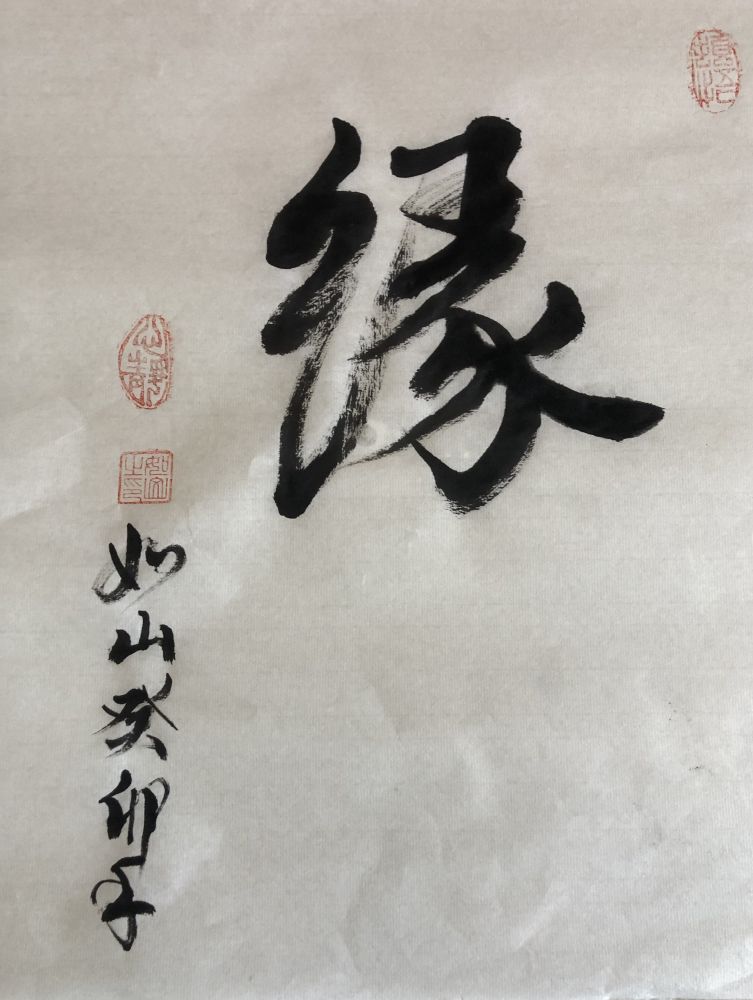 缘
如山癸卯年